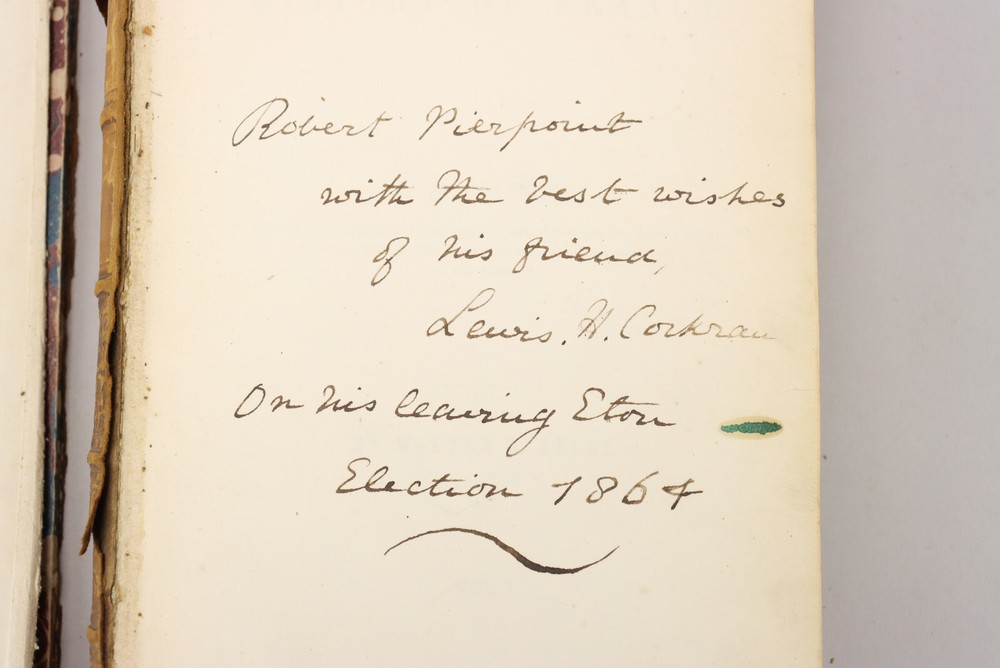 Robert Pierpoint
with the best wishes
of his friend,
Lewis. H. Corkran
On his leaving Eton
Election 1864